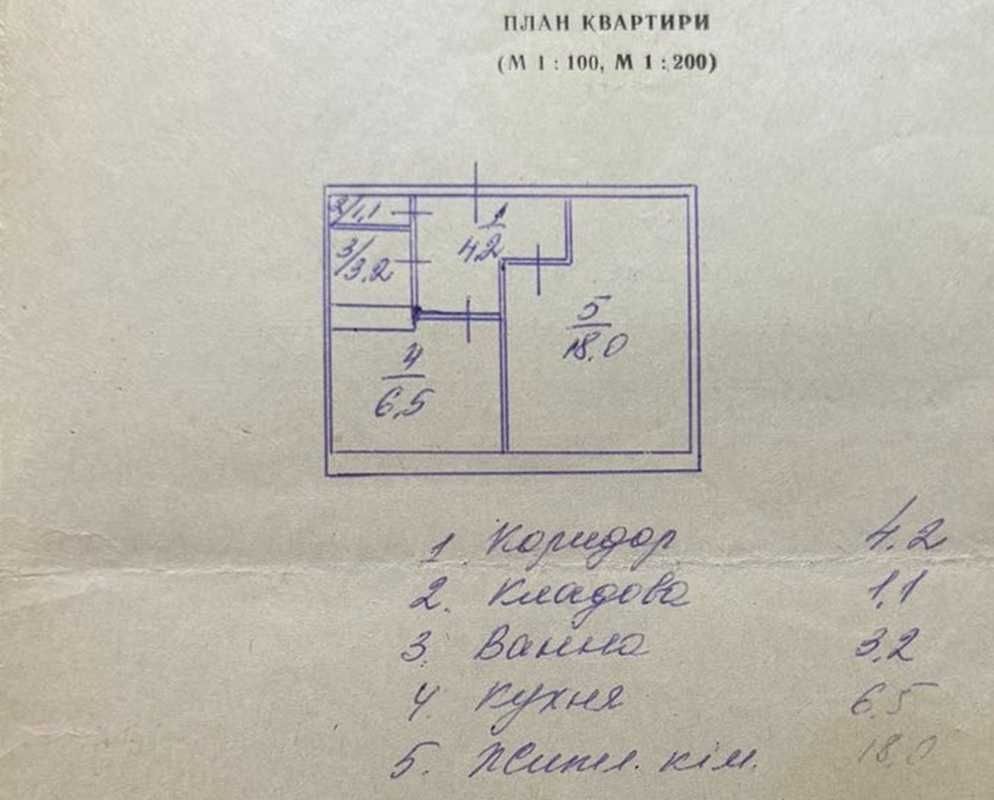 ПЛАН КВАРТИРИ
(М 1 : 100, М 1 : 200)
2/1,1
1
4.2
3/3.2
5
18.0
4
6.5
1 Коридор 4.2
2. Кладова 1,1
3. Ванна 3,2
4. Кухня 6.5
5. Житл. кім. 18,0